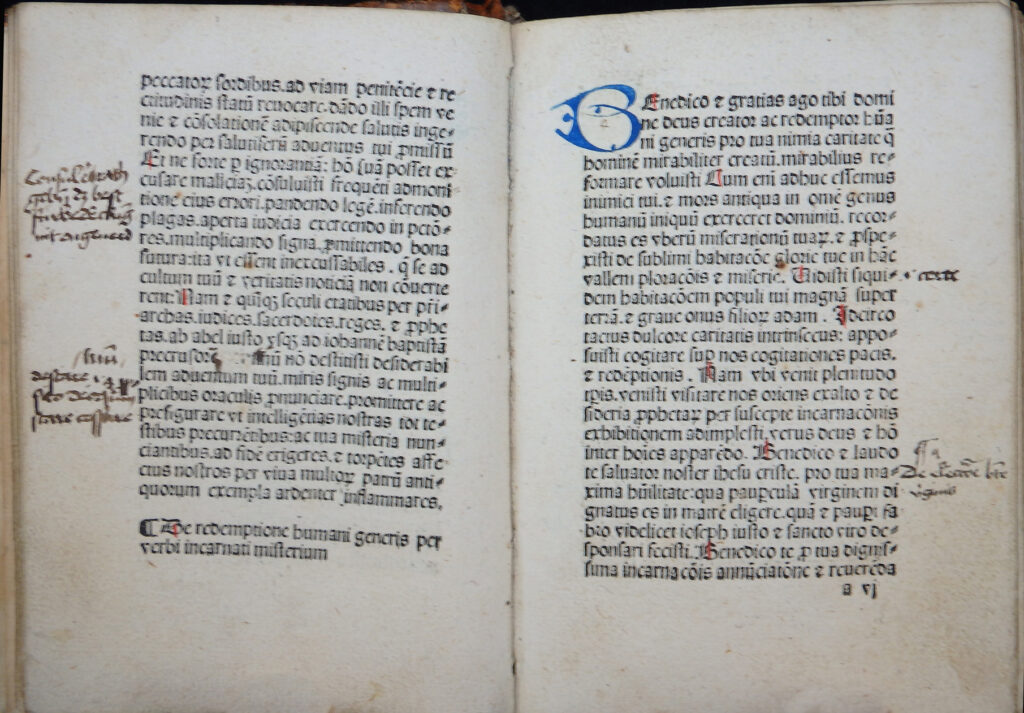 peccatoꝝ sordibus.ad viam penitēcie ⁊ re⸗
ctitudinis statū reuocare.dādo illi spem ve
nie ⁊ cōsolationē adipiscende salutis inge⸗
rendo per salutiferū aduentus tui ꝓmissū
Et ne forte ꝑ ignorantiā: hō suā posset ex⸗
cusare maliciaꝫ.cōsuluisti frequēti admoni
tione eius errori.pandendo legē.inferendo
plagas.aperta iudicia exercendo in pctō⸗
res.multiplicando signa.ꝓmittendo bona
futura:ita vt essent inexcussabiles. q̄ se ad
cultum tuū ⁊ veritatis noticiā non cōuerte
rent: Nam ⁊ quīqꝫ seculi etatibus per pr̄i⸗
archas.iudices.sacerdotes.reges. ⁊ ꝓphe
tas.ab abel iusto vsqꝫ ad iohannē baptistā
precursorē nō destitisti desiderabi
lem aduentum tuū.miris signis ac multi⸗
plicibus oraculis ꝓnunciare.promittere ac
prefigurare vt intelligētias nostras tot te⸗
stibus precurrētibus:ac tua misteria nun⸗
ciantibus.ad fidē erigeres.⁊ torpētes affe⸗
ctus nostros per viua multoꝝ patrū anti⸗
quorum exempla ardenter inflammares.
¶ De redemptione humani generis per
verbi incarnati misterium
BEnedico ⁊ gratias ago tibi domi
ne deus creator ac redemptor hūa
ni generis pro tua nimia caritate q̄
hominē mirabiliter creatū.mirabilius re⸗
formare voluisti Cum enī adhuc essemus
inimici tui.⁊ mors antiqua in omē genus
humanū iniquū exerceret dominiū. recor⸗
datus es vberū miserationū tuaꝝ. ⁊ ꝓspe⸗
xisti de sublimi habitacōe glorie tue in hāc
vallem ploracōis ⁊ miserie. Vidisti siqui⸗
certe
dem habitacōem populi tui magnā super
terrā.⁊ graue onus filioꝝ adam. Idcirco
tactus dulcore caritatis intrinsecus: appo⸗
suisti cogitare suꝑ nos cogitationes pacis.
⁊ redēptionis. Nam vbi venit plenitudo
tꝑis.venisti visitare nos oriens exalto ⁊ de
sideria ꝓphetaꝝ per suscepte incarnacōnis
exhibitionem adimplesti.verus deus ⁊ hō
inter hoīes apparēdo. Benedico ⁊ laudo
te saluator noster ihesu criste. pro tua ma⸗
xima hūilitate:qua pauꝑculā virginem di
gnatus es in matrē eligere.quā ⁊ pauꝑi fa
bro videlicet ioseph iusto ⁊ sancto viro de⸗
sponsari fecisti. Benedico te ꝓ tua dignis⸗
sima incarnacōis annūciatōne ⁊ reuerēda
a vj